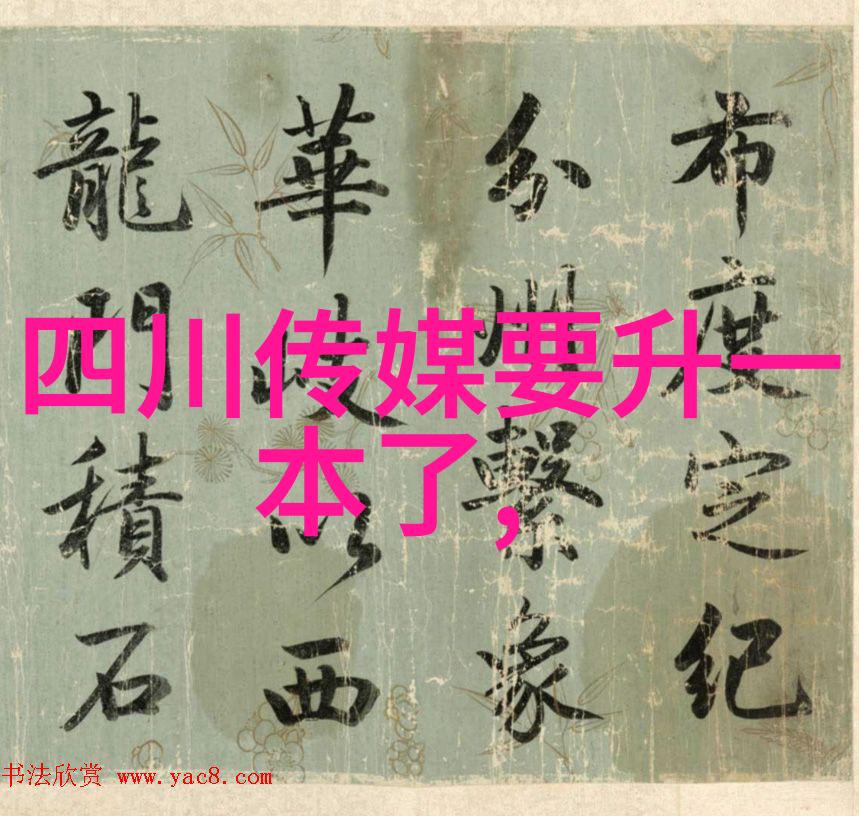 四川传媒要升一
本了，
布度定紀
分州繫象
華岐以西
龍門積石
书法欣赏 www.yac8.com